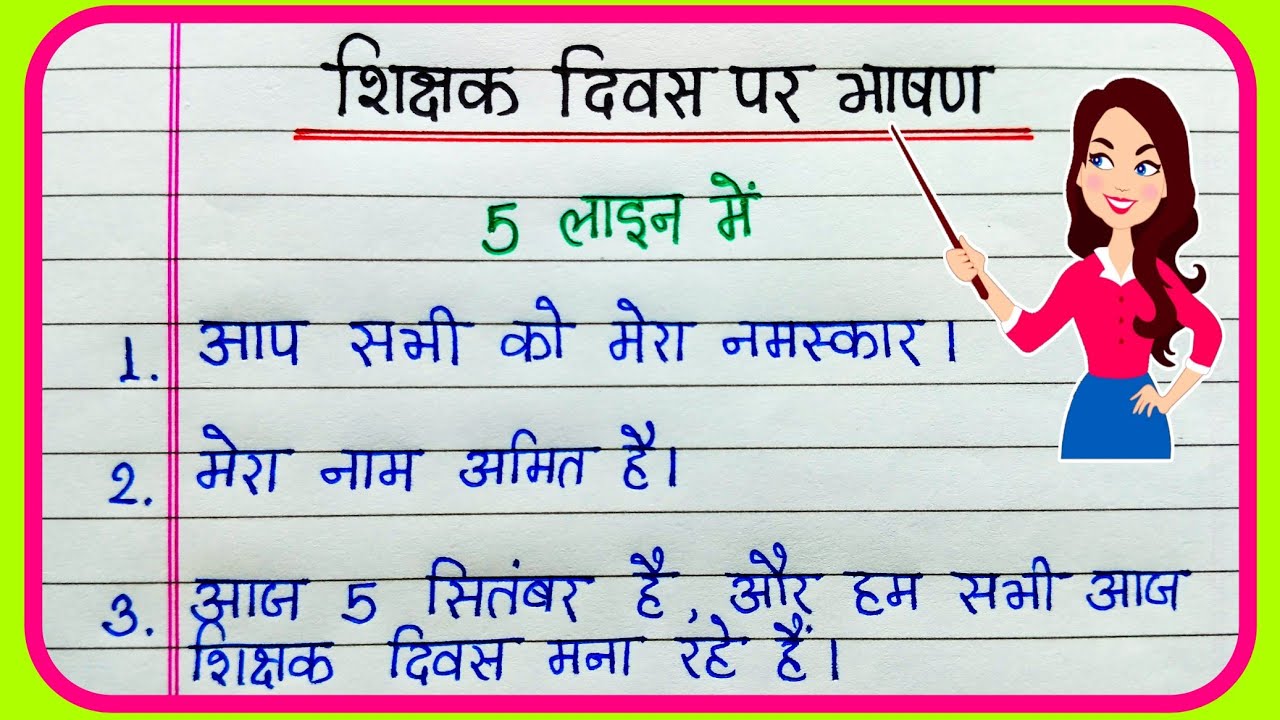 शिक्षक दिवस पर भाषण
5 लाइन में
1. आप सभी को मेरा नमस्कार।
2. मेरा नाम अमित है।
3. आज 5 सितंबर है, और हम सभी आज
शिक्षक दिवस मना रहे हैं।